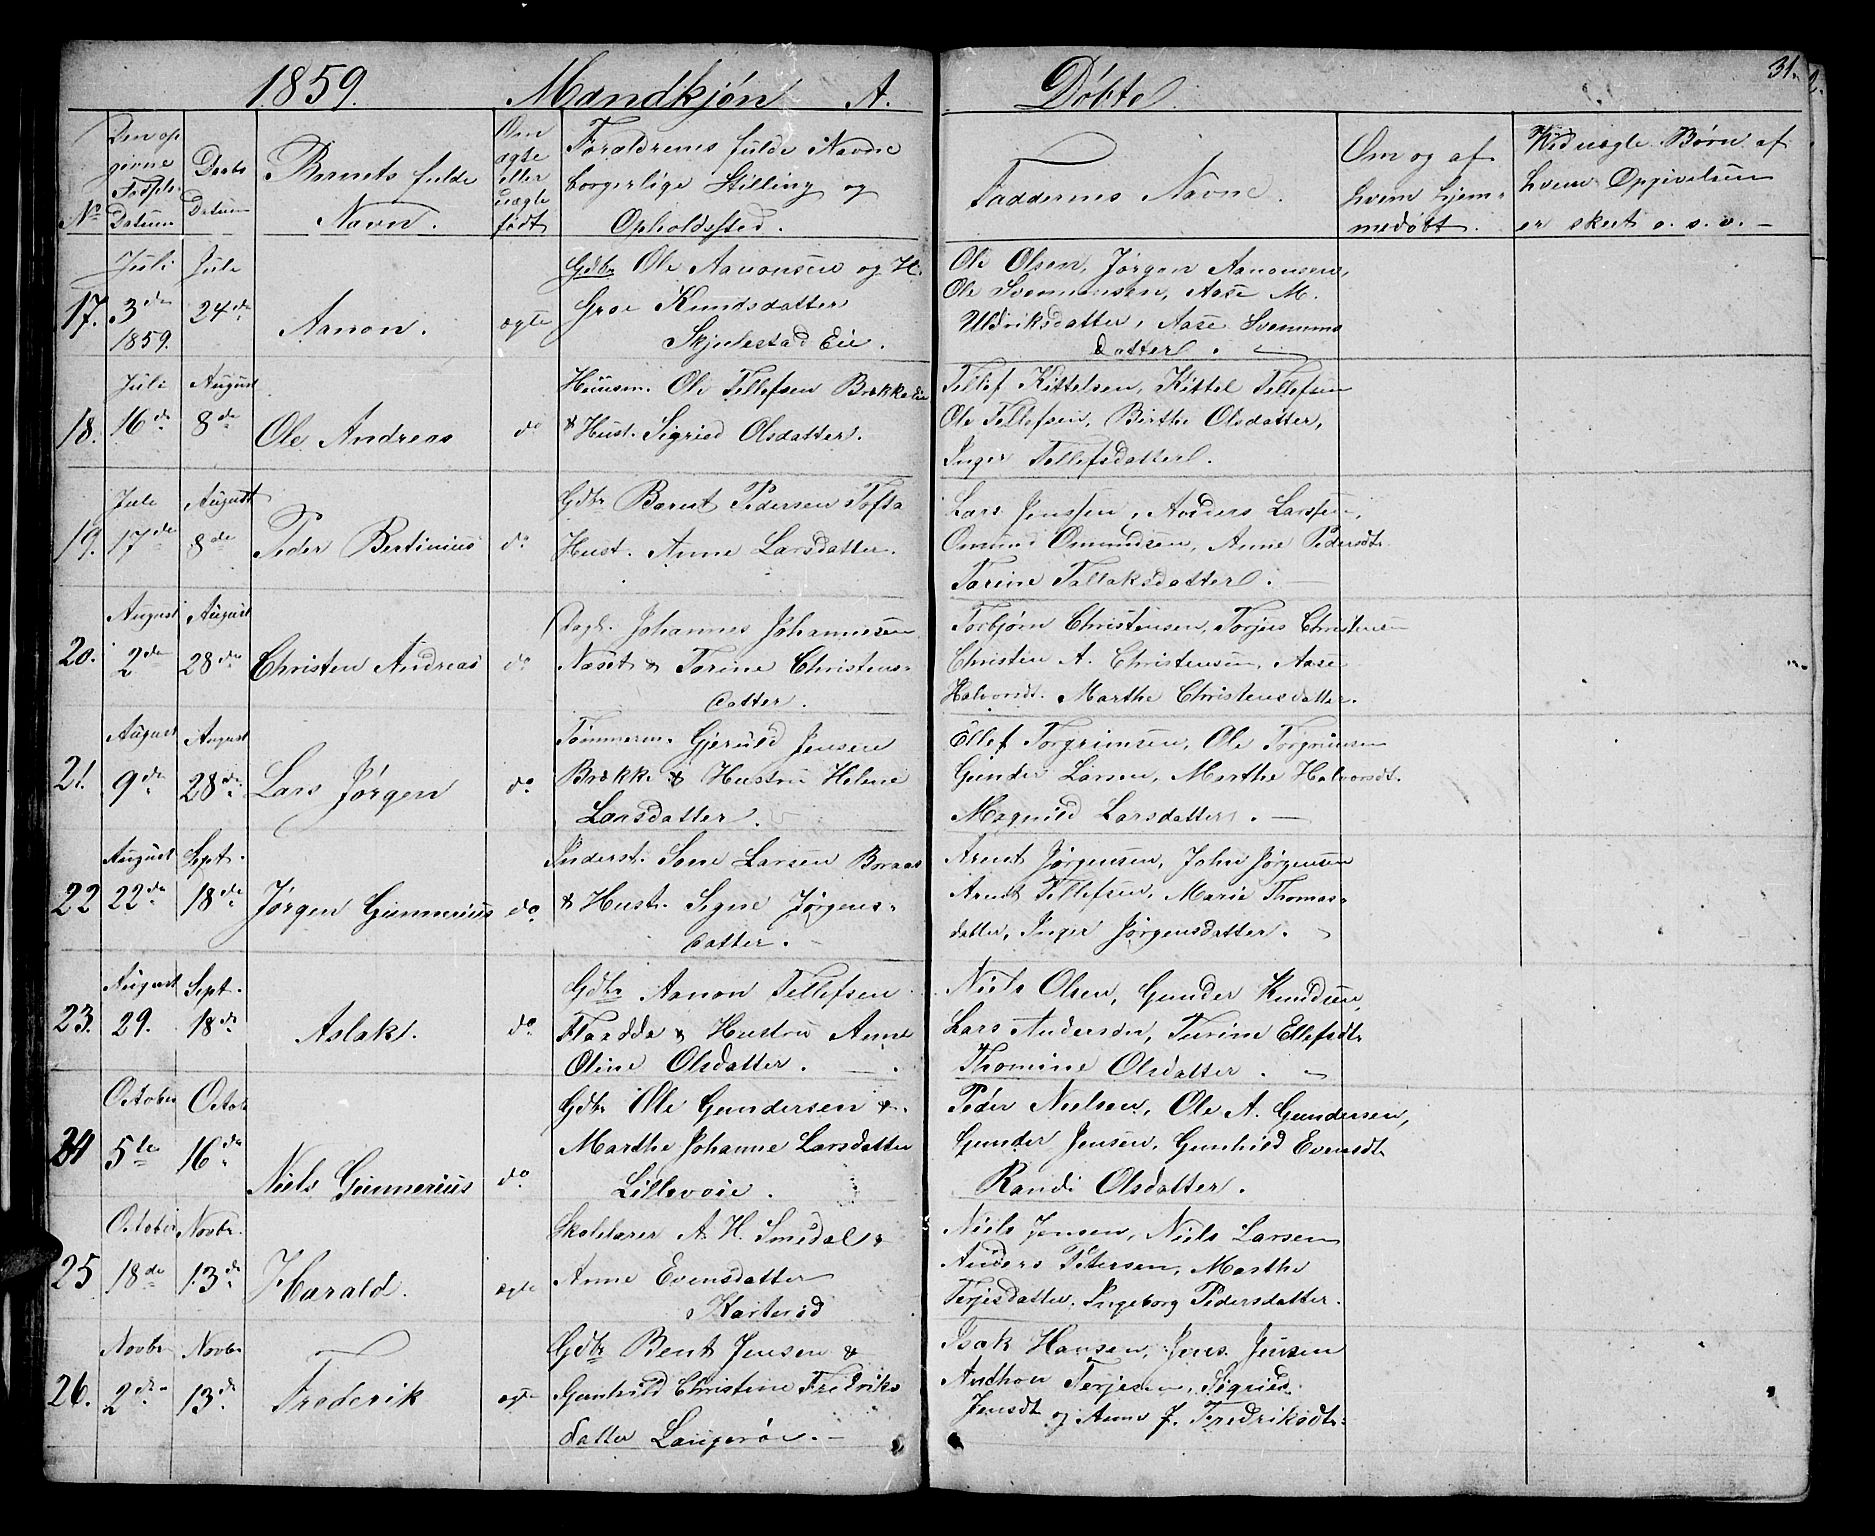 1859. Mandkjøn A. Døbte. 31.
No
Den op
givne
Fødsels
Datum
Daabs
Datum
Barnets fulde
Navn.
Om
ægte
eller
uægte
født
Forældrenes fulde Navne
borgerlige Stilling og
Opholdssted.
Faddernes Navne.
Om og af
hvem hjem-
medøbt.
Ved uægte Børn af
hvem Opgivelsen
er skeet o. s. v. -
17. Juli 3de 1859. Juli 24de Aanon. ægte
Gdbr Ole Aanonsen og H.
Groe Knudsdatter
Skjulestad Eie.
Ole Olsen, Jørgen Aanonsen,
Ole Svennunsen, Aase M.
Uldriksdatter, Aase Svennuns
datter.
18. Juli 16de August 8de Ole Andreas do
Huusm. Ole Tellefsen Brække
& Hust. Sigried Olsdatter.
Tellef Kittelsen, Kittel Tellefsen
Ole Tellefsen, Birthe Olsdatter,
Inger Tellefsdatter.
19. Juli 17de August 8de Peder Bertinius do
Gdbr Barut Pedersen Tofta
Hust. Anne Larsdatter.
Lars Jenssen, Anders Larssen,
Omund Omundsen, Anne Pedersdt.
Torine Tallaksdatter.
20. August 2de August 28de Christen Andreas do
Johannes Johannesen
Næset & Torine Christens-
datter.
Torbjørn Christensen, Torjus Christensen
Christen A. Christensen, Aase
Halvorsdt. Marthe Christensdatter.
21. August 9de August 28de Lars Jørgen do
Tømmerm. Gjeruld Jensen
Brække & Hustru Helene
Larsdatter.
Ellef Torgrimsen, Ole Torgrimsen
Gunder Larsen, Marthe Halvorsdt.
Magnild Larsdatter. -
22 August 22de Sept. 18de Jørgen Gunnerius do
Inderst. Sone Larsen Boraas
& Hust. Signe Jørgens-
datter.
Arent Jørgensen, John Jørgensen
Arent Tellefsen, Marie Thomas-
datter, Inger Jørgensdatter.
23. August 29. Sept. 18de Aslak. do
Gdbr Aanon Tellefsen
Flaadda & Hustru Anne
Oline Olsdatter.
Niels Olsen, Gunder Knudsen,
Lars Andersen, Turine Ellefsdt.
Thomine Olsdatter.
24 October 5te Octob. 16de Niels Gunnerius do
Gdbr Ole Gundersen &
Marthe Johanne Larsdatter
Lillevoie.
Peder Nielsen, Ole A. Gundersen,
Gunder Jensen, Gunhild Evensdt.
Randi Olsdatter.
25 October 18de Novbr. 13de Harald. ægte
Skolelærer A. H. Smedal &
Anne Evensdatter
Karterød
Niels Jensen, Niels Larsen
Anders Petersen, Marthe
Terjesdatter. Ingeborg Pedersdatter.
26. Novbr 2de Novbr 13de Frederik ægte
Gdbr Bent Jensen &
Gunhild Christine Fredriks
datter Langerøe. -
Isak Hansen, Jens Jensen
Andhon Terjesen, Sigried
Jensdt og Anne J. Fredriksdt.